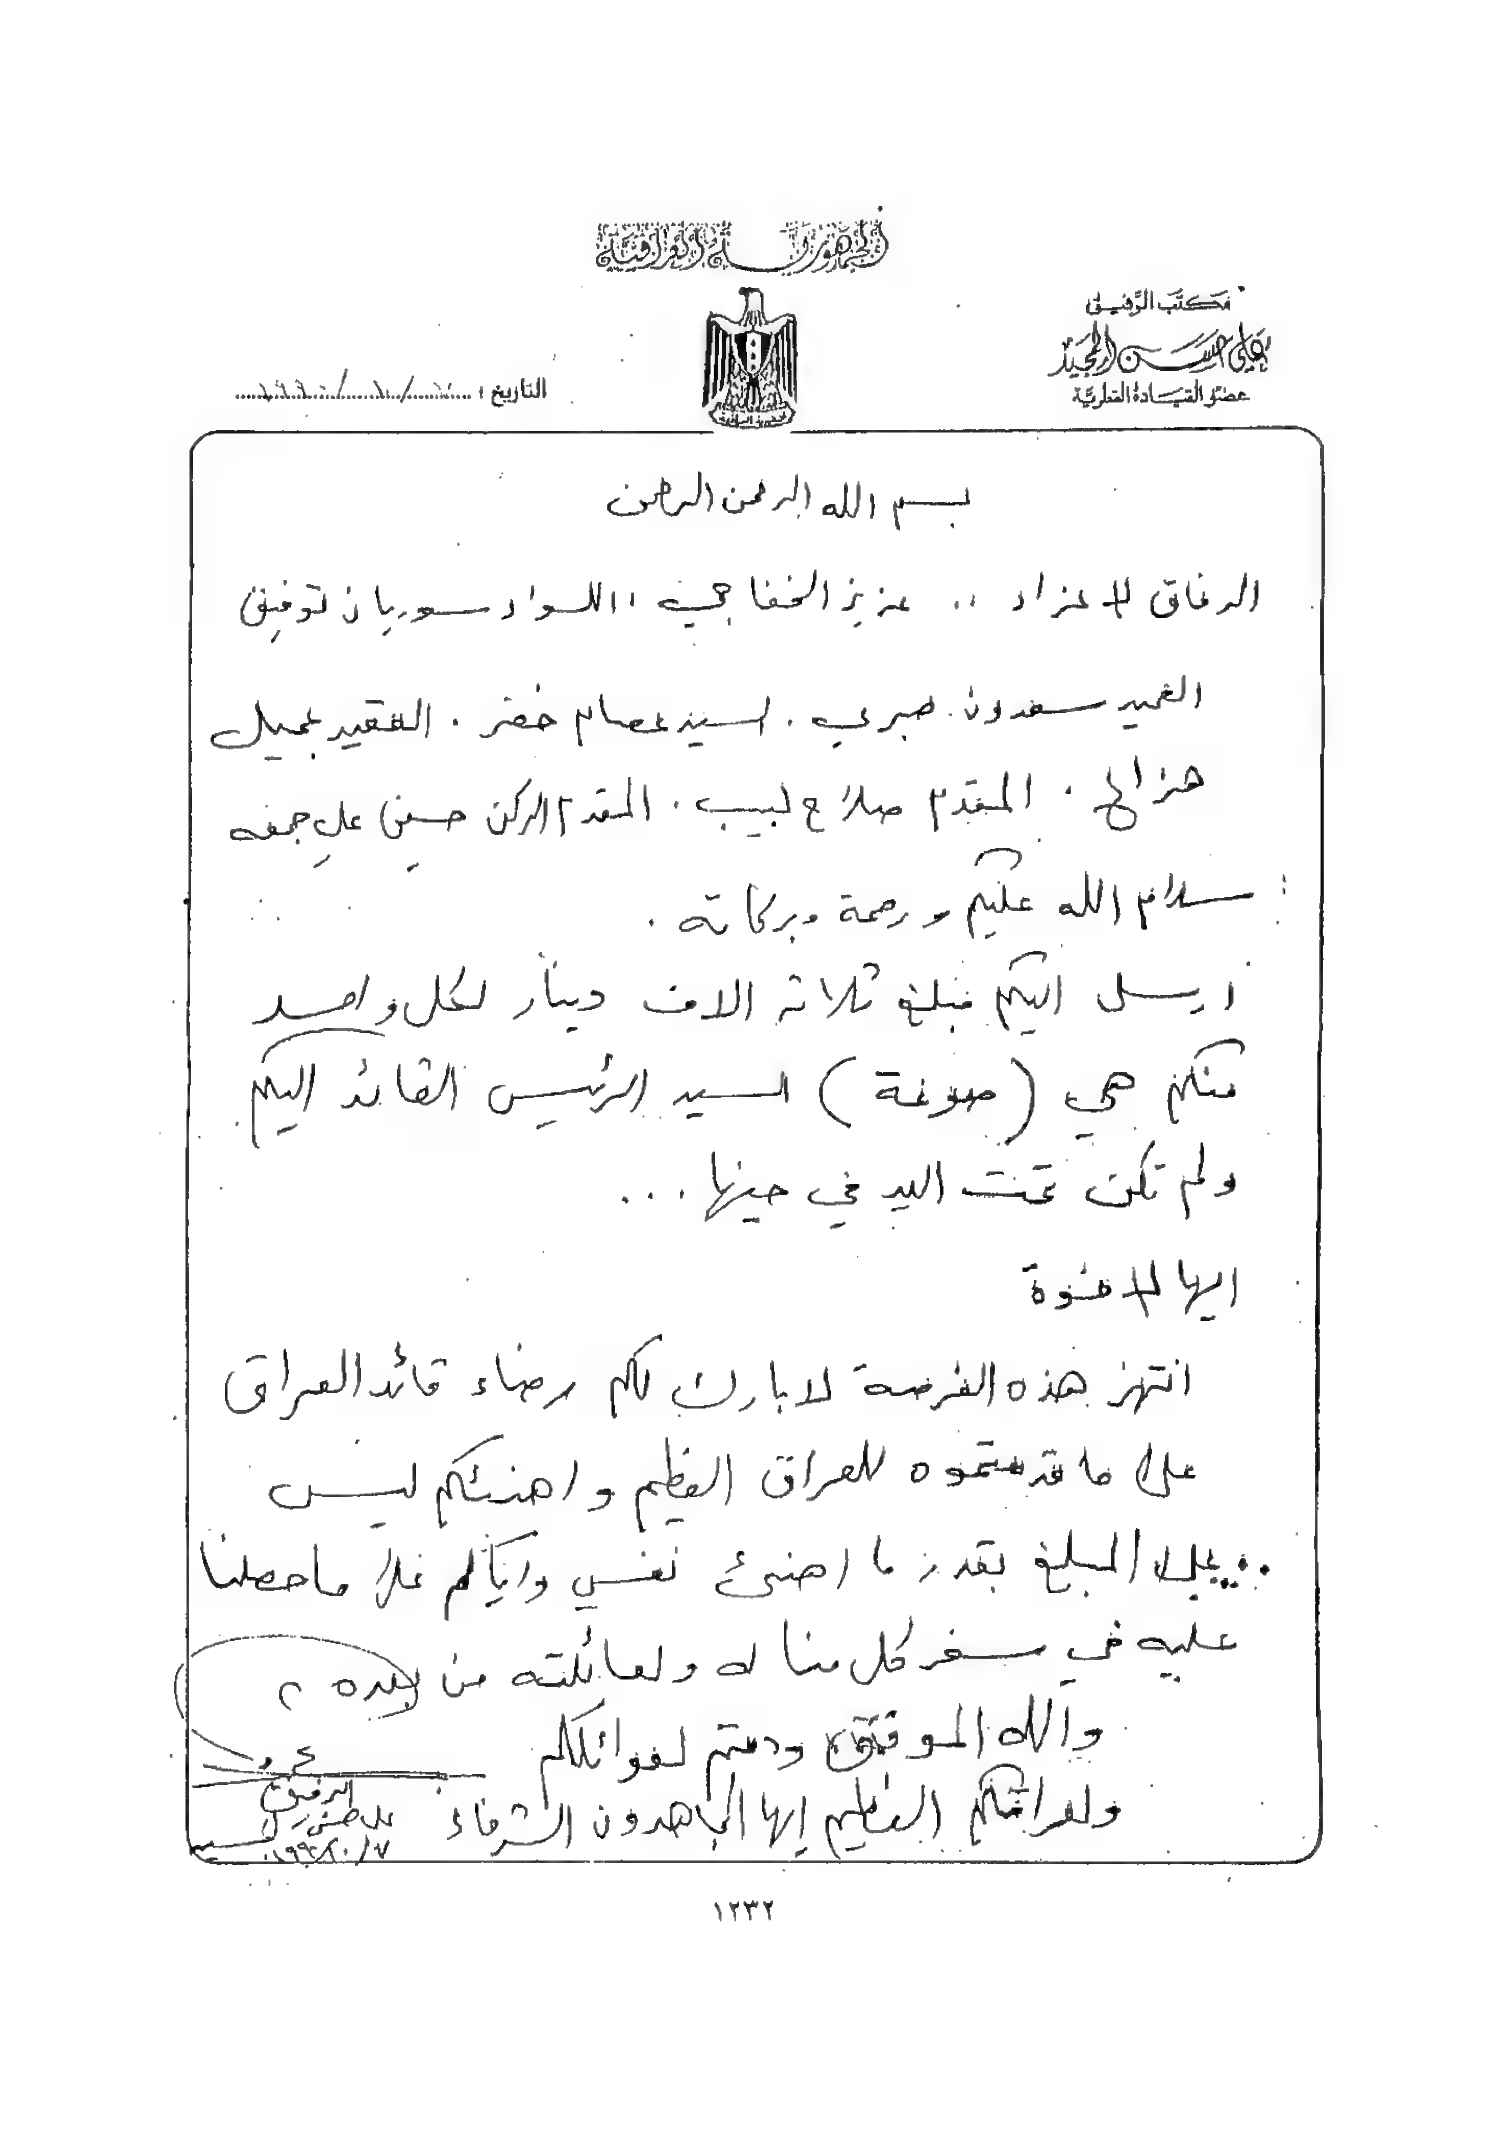 الجمهورية العراقية
مكتب الرفيق
علي حسن المجيد
عضو القيادة القطرية
التاريخ :
بسم الله الرحمن الرحمن
الرفاق الاعزاء .. عزيز الخفاجي .. اللواء سوريان توفيق
العميد سعدون صبري . السيد عصام خضر . العقيد جميل
هزاع . المقدم صلاح لبيب . المقدم الركن حسين علي جمعه
سلام الله عليكم ورحمة وبركاته .
ارسل اليكم مبلغ ثلاثة الاف دينار لكل واحد
منكم هي ( صوغة ) السيد الرئيس القائد اليكم
ولم تكن تحت اليد في حينها ...
ايها الاخوة
انتهز هذه الفرصة لابارك لكم رضاء قائد العراق
على ما قدمتموه للعراق العظيم واهنئكم ليس
على المبلغ بقدر ما اهنئ نفسي واياكم على ما حصلنا
عليه في سفر كل منا له ولعائلته من بعده
والله الموفق ودمتم لعوائلكم
ولعراقكم العظيم ايها المجاهدون الشرفاء
الرفيق
علي حسن
١٢٣٢